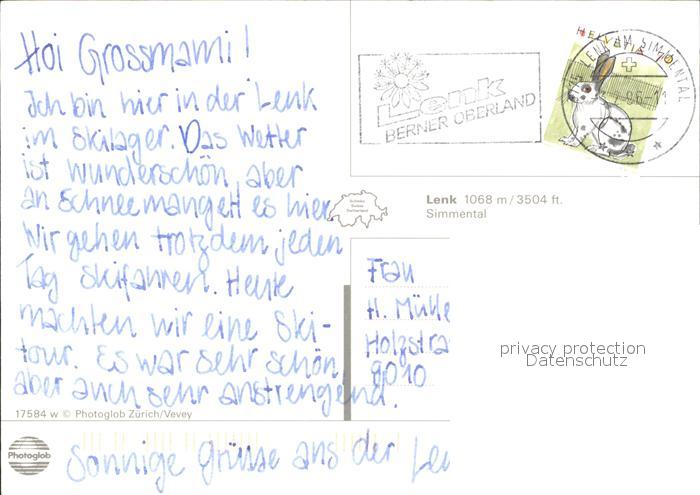 Hoi Grossmami!
Ich bin hier in der Lenk
im Skilager. Das Wetter
ist wunderschön, aber
an Schnee mangelt es hier.
Wir gehen trotzdem jeden
Tag skifahren. Heute
machten wir eine Ski-
tour. Es war sehr schön,
aber auch sehr anstrengend.
Sonnige Grüsse aus der Le
17584 w © Photoglob Zürich/Vevey
Photoglob
Lenk
BERNER OBERLAND
HELVETIA 70
LENK IM SIMMENTAL
Lenk 1068 m / 3504 ft.
Simmental
Schweiz
Suisse
Switzerland
Frau
H. Mülle
Holzstra
9010
privacy protection
Datenschutz